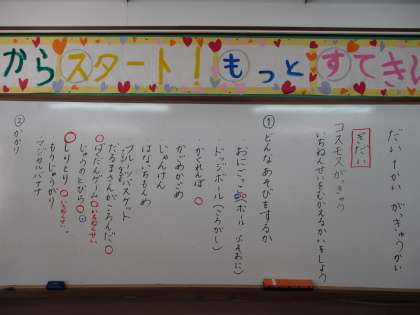 からスタート！もっとすてきな
だい1かい がっきゅうかい
ぎだい
コスモスがっきゅう
いちねんせいをむかえるかいをしよう
① どんなあそびをするか
・おにごっこ(ボール
・ドッジボール(ころがし)
・かくれんぼ
・かごめかごめ
・じゃんけん
・はないちもんめ
・フルーツバスケット
・だるまさんがころんだ
・ばくだんゲーム
・じゅうのとびら
・しりとり
・もうじゅうがり
・マジカルバナナ
② かかり